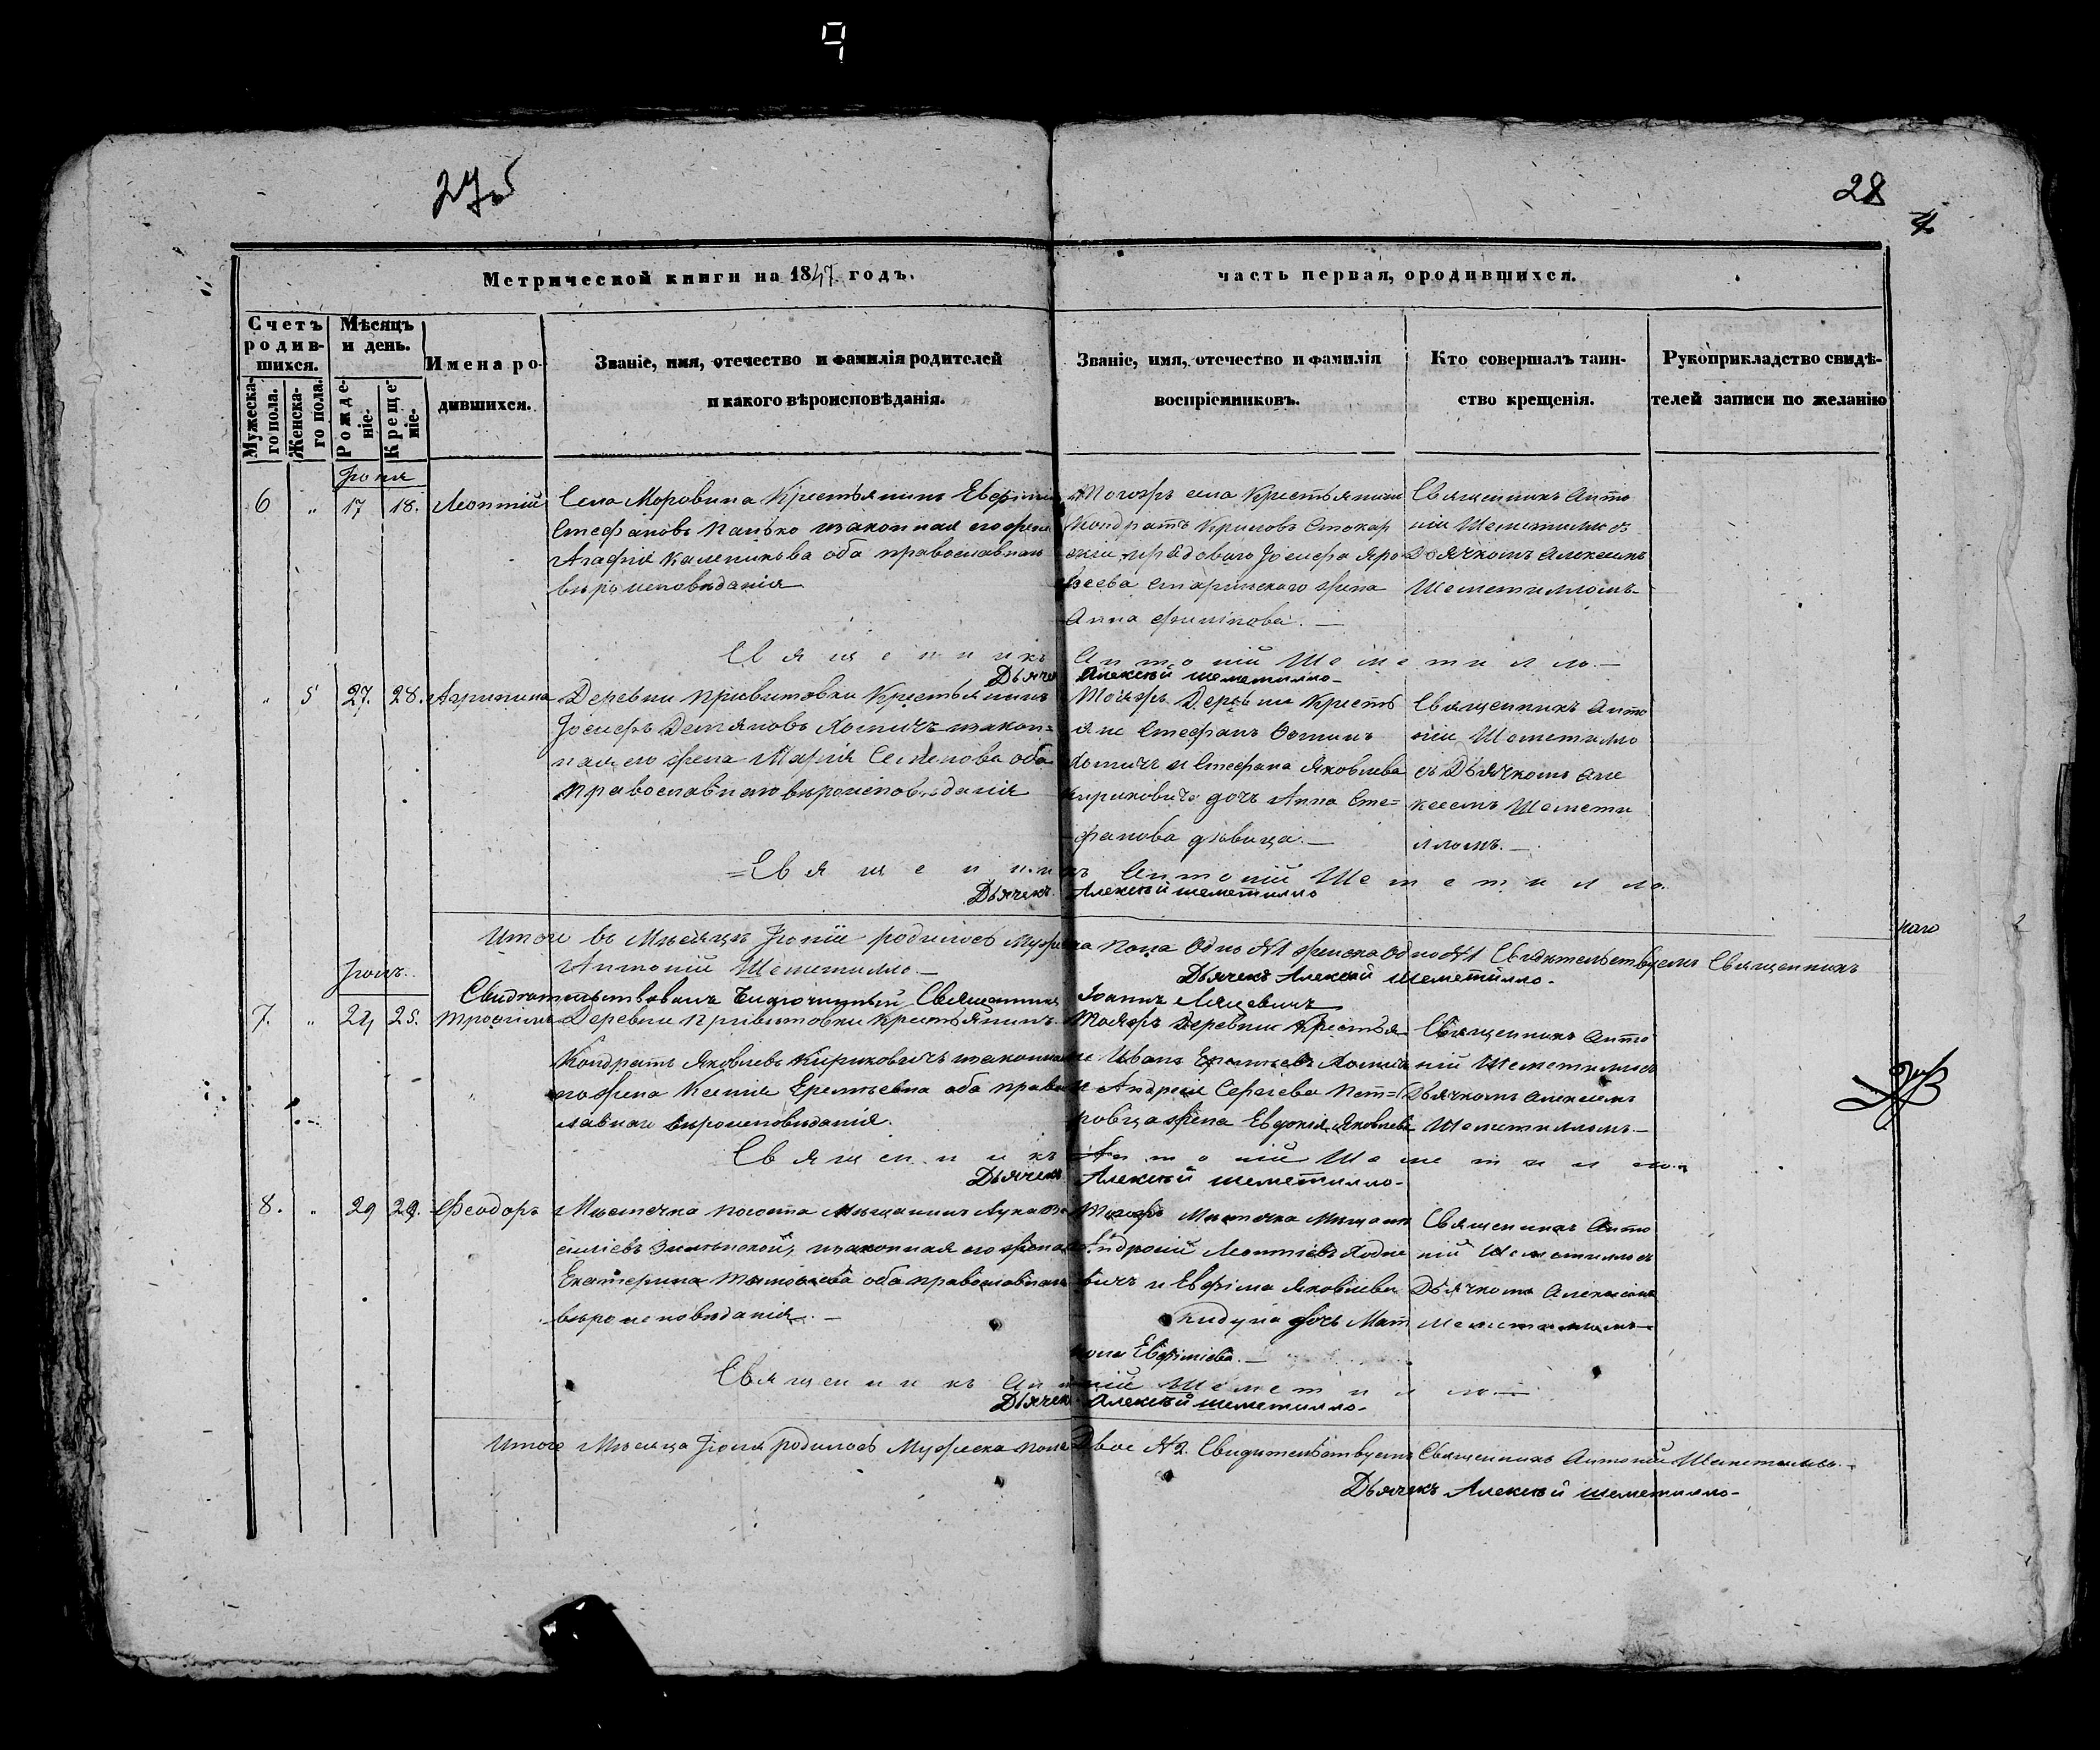 27об
28
4
Метрической книги на 1847 годъ.
часть первая, ородившихся.
Счетъ родив-шихся.
Мѣсяцъ и день.
Имена ро-дившихся.
Званіе, имя, отечество и фамилія родителей и какого вѣроисповѣданія.
Званіе, имя, отечество и фамилія воспріемниковъ.
Кто совершалъ таин-ство крещенія.
Рукоприкладство свидѣ-телей записи по желанію
Мужеска-го пола.
Женска-го пола.
Рожде-ніе.
Креще-ніе.
Іюня
6 " 17 18. Леонтій
Села Моровина Крестьянинъ Евфимій
Стефановъ Панько изаконная его жена
Агафія Каленикова оба православнаго
вѣроисповѣданія
Тогожъ села Крестьянинъ
Кондратъ Криловъ
Іосифа
жена
Анна
Священникъ Анто
ній Шеметилло съ
Дьячкомъ Алексѣемъ
Шеметилломъ
Священникъ Антоній Шеметилло.
Дьячек Алексѣй шеметилло
" 5 27. 28. Агрипина
Деревни Привитовки Крестьянинъ
Іосифъ Демяновъ Хомичъ изакон=
ная его жена Марія Семенова оба
Православнаго вѣроисповѣданія
Тойжъ Деревни Кресть
яне Стефанъ Фоминъ
Хомичъ и Стефана Яковлева
Кириковича дочъ Анна Сте=
фанова дѣвица.
Священникъ Анто
ній Шеметилло
съ Дьячкомъ Але
ксеемъ Шемети
лломъ.
=Священникъ Антоній Шеметилло.
Дьячекъ Алексѣй шеметилло
Итого въ Мѣсяцѣ Іюнѣ родилось Мужеска пола Одно №1 женска Одно №1 Свидѣтельствуемъ Священникъ
Антоній Шеметилло
Дьячекъ Алексѣй шеметилло.
Іюль.
Свидѣтельствовалъ Благочинный Священникъ Іоаннъ
7. " 24 25. Трофимъ
Деревни Привитовки Крестьянинъ
Кондратъ Яковлевъ Кириковичъ изаконная
его жена Ксенія Еремѣевна оба право
славнаго вѣроисповѣданія.
Тойжъ Деревни Крестья
не Иванъ Хомичъ
и Андрея Сергіева Пет=
ровца жена Евдокія Яковлева
Священникъ Анто
ній Шеметилло съ
Дьячкомъ Алексѣемъ
Шеметилломъ
Священникъ Антоній Шеметилло.
Дьячекъ Алексѣй шеметилло
8. " 29 29. Феодоръ
Мѣстечка Погоста Мѣщанинъ Лука Ва
силіевъ изаконная его жена
Екатерина Тимофеева оба православнаго
вѣроисповѣданія.
Тогожъ Мѣстечка Мѣщанинъ
Андроній Леонтіевъ Ходке
вичъ и Евфима Яковлева
дочъ Мат
рона Евфиміева.
Священникъ Анто
ній Шеметилло съ
Дьячкомъ Алексѣемъ
Шеметилломъ
Священникъ Антоній Шеметилло.
Дьячекъ Алексѣй шеметилло
Итого Мѣсяца Іюля родилось Мужеска пола Двое №2. Свидѣтельствуемъ Священникъ Антоній Шеметилло.
Дьячекъ Алексѣй шеметилло